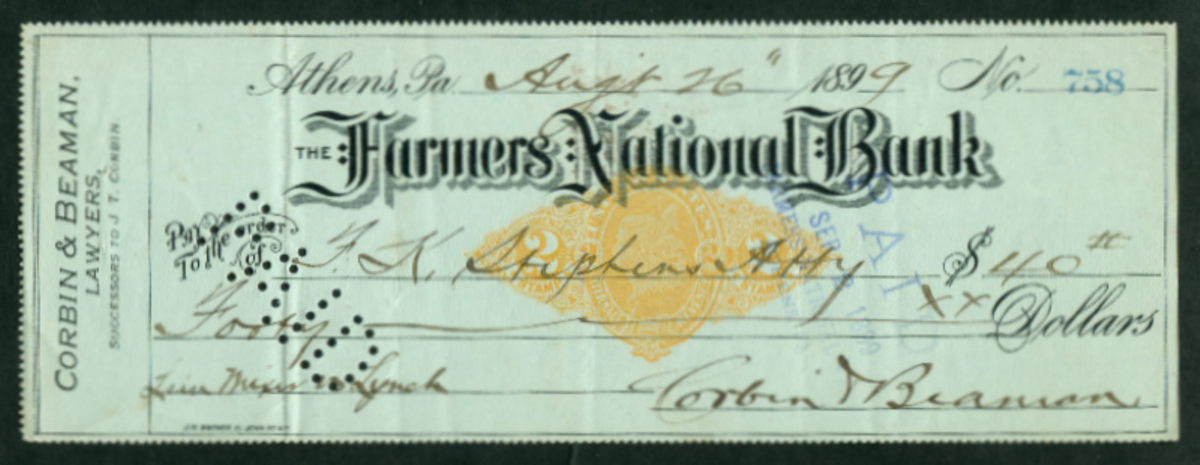 CORBIN & BEAMAN,
LAWYERS,
SUCCESSORS TO J. T. CORBIN.
Athens, Pa. Augt 26" 1899 No. 758
THE Farmers National Bank
Pay To the order of F. K. Stephens Atty $40
Forty xx Dollars
Lynch
Corbin & Beaman
2 2
STAMP
PAID
SEP 2 1899